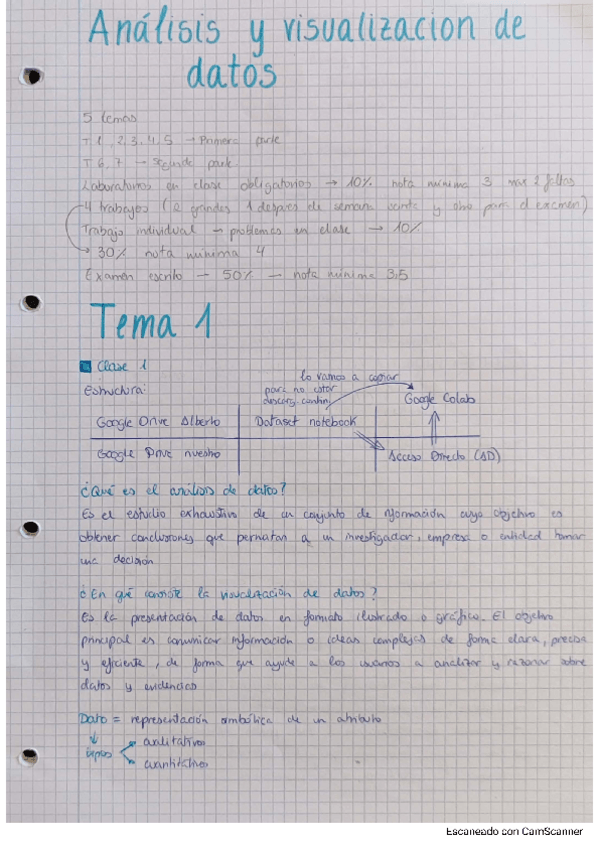 Análisis y visualizacion de
datos
5 temas
T 1, 2, 3, 4, 5 → Primera parte
T 6, 7 → Segunda parte
Laboratorios en clase obligatorios → 10% nota minima 3 max 2 faltas
4 trabajos (2 grandes 1 despues de semana santa y otro para el examen)
Trabajo individual → problemas en clase → 10%
→ 30% nota minima 4
Examen escrito — 50% — nota minima 3,5
Tema 1
Clase 1
lo vamos a copiar
estructura:
para no estar
descarg. contin
Google Colab
Google Drive Alberto
Dataset notebook
Google Drive nuestro
Acceso Directo (AD)
¿Qué es el análisis de datos?
Es el estudio exhaustivo de un conjunto de información cuyo objetivo es
obtener conclusiones que permitan a un investigador, empresa o entidad tomar
una decisión
¿En qué consiste la visualización de datos?
Es la presentación de datos en formato ilustrado o gráfico. El objetivo
principal es comunicar información o ideas complejas de forma clara, precisa
y eficiente, de forma que ayude a los usuarios a analizar y razonar sobre
datos y evidencias
Dato = representación simbólica de un atributo
tipos
cualitativos
cuantitativos
Escaneado con CamScanner